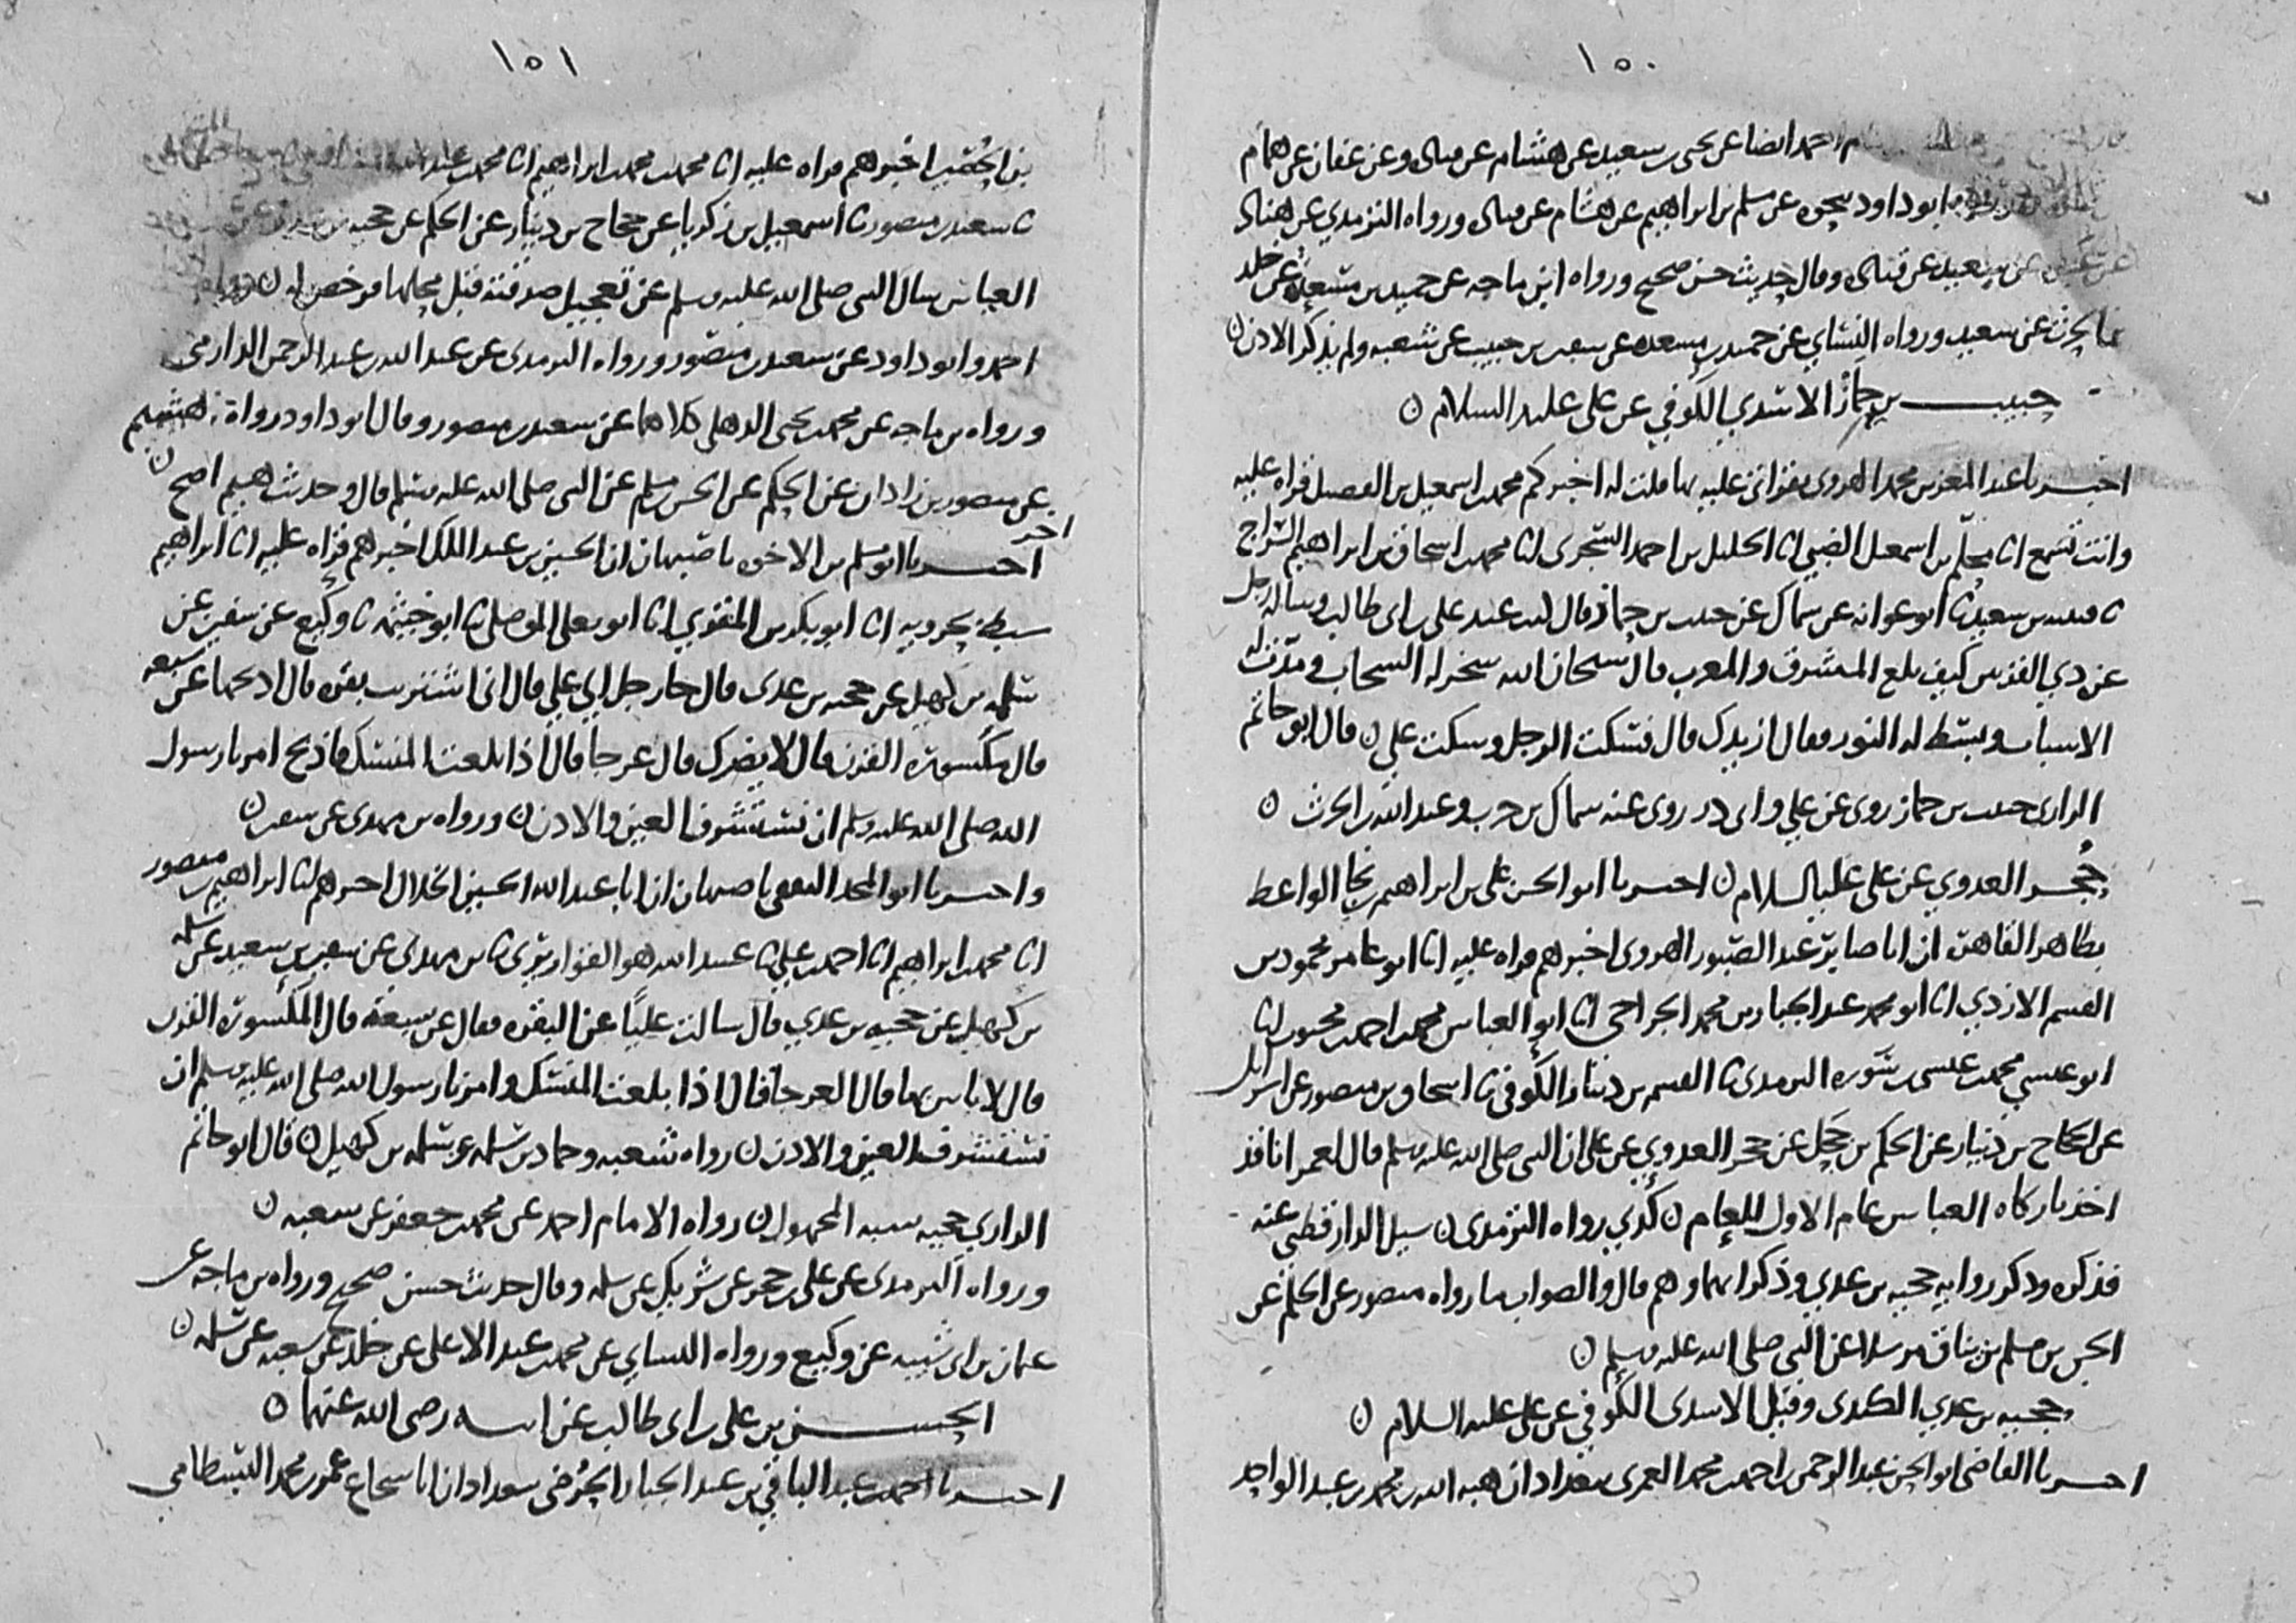 ١٥٠
احمد ايضا عن يحيى بن سعيد عن هشام عن قتادة وعن عفان عن همام
ابو داود بنحوه عن مسلم بن ابراهيم عن هشام عن قتادة ورواه الترمذي عن هناد
عن سعيد عن قتادة وقال حديث حسن صحيح ورواه ابن ماجه عن حميد بن مسعدة عن خلد
بن الحرث عن سعيد ورواه النسائي عن حميد بن مسعده عن سفين بن حبيب عن شعبه ولم يذكر الاذن ن
حبيب بن حماز الاسدي الكوفي عن علي عليه السلام ن
اخبرنا عبد المعز بن محمد الهروي بقراتي عليه بها قلت له اخبركم محمد بن اسمعيل بن الفضيل قراه عليه
وانت تسمع انا محلم بن اسمعيل الضبي انا الخليل بن احمد السجزي انا محمد بن اسحاق بن ابراهيم السراج
ثا قتيبه بن سعيد ثا ابو عوانه عن سماك عن حبيب بن حماز قال كنت عند علي بن ابي طالب وساله رجل
عن ذي القرنين كيف بلغ المشرق والمغرب قال سبحان الله سخر له السحاب ومدت له
الاسباب وبسط له النور فقال ازيدك قال فسكت الرجل وسكت علي ن قال ابو حاتم
الرازي حبيب بن حماز روى عن علي وابي ذر روى عنه سماك بن حرب وعبد الله بن الحرث ن
حجر العدوي عن علي عليه السلام ن اخبرنا ابو الحسن علي بن ابراهيم بن نجا الواعظ
بظاهر القاهرة ان ابا صابر عبد الصبور الهروي اخبرهم قراه عليه انا ابو عامر محمود بن
القسم الازدي انا ابو محمد عبد الجبار بن محمد الجراحي انا ابو العباس محمد بن احمد بن محبوب انا
ابو عيسى محمد بن عيسى بن سوره الترمذي ثا القسم بن دينار الكوفي ثا اسحاق بن منصور عن اسرائيل
عن الحجاج بن دينار عن الحكم بن جحل عن حجر العدوي عن علي ان النبي صلى الله عليه وسلم قال لعمر انا قد
اخذنا زكاة العباس عام الاول للعام ن كذي رواه الترمذي ن سيل الدارقطني عنه
فذكره وذكر روايه حجيه بن عدي وذكر انهما وهم قال والصواب ما رواه منصور عن الحكم عن
الحسن بن مسلم بن يناق مرسلا عن النبي صلى الله عليه وسلم ن
حجيه بن عدي الكندي وقيل الاسدي الكوفي عن علي عليه السلام ن
اخبرنا القاضي ابو الحسن عبد الرحمن بن احمد بن محمد العمري ببغداد ان هبه الله بن محمد بن عبد الواحد
١٥١
بن الحصين اخبرهم قراه عليه انا محمد بن محمد بن ابراهيم انا محمد بن عبد الله
ثا سعيد بن منصور ثا اسمعيل بن زكريا عن حجاج بن دينار عن الحكم عن حجيه بن
العباس سال النبي صلى الله عليه وسلم عن تعجيل صدقته قبل محلها فرخص له ن رواه
احمد وابو داود عن سعيد بن منصور ورواه الترمذي عن عبد الله بن عبد الرحمن الدارمي
ورواه بن ماجه عن محمد بن يحيى الذهلي كلاهما عن سعيد بن منصور وقال ابو داود رواه هشيم
عن منصور بن زاذان عن الحكم عن الحسن بن مسلم عن النبي صلى الله عليه وسلم قال وحديث هشيم اصح ن
اخبرنا ابو مسلم بن الاخوه باصبهان ان الحسين بن عبد الملك اخبرهم قراه عليه انا ابراهيم
سبط بحرويه انا ابو بكر بن المقري انا ابو يعلى الموصلي ثا ابو خيثمه ثا وكيع عن سفين عن
سلمه بن كهيل عن حجيه بن عدي قال جا رجل الي علي قال اني اشتريت بقره قال اذبحها عن سبعه
قال مكسورة القرن قال لا يضرك قال عرجا قال اذا بلغت المنسك فاذبح امرنا رسول
الله صلى الله عليه وسلم ان نستشرف العين والاذن ن ورواه بن مهدي عن سفين ن
واخبرنا ابو المجد الثقفي باصبهان ان ابا عبد الله الحسين الخلال اخبرهم انا ابراهيم بن منصور
انا محمد بن ابراهيم انا احمد بن علي ثا عبيد الله هو القواريري ثا بن مهدي عن سفين بن سعيد عن سلمه
بن كهيل عن حجيه بن عدي قال سالت عليا عن البقره فقال عن سبعة قال المكسورة القرن
قال لا باس بها قال العرجا قال اذا بلغت المنسك وامرنا رسول الله صلى الله عليه وسلم ان
نستشرف العين والاذن ن رواه شعبه وحماد بن سلمه عن سلمه بن كهيل ن قال ابو حاتم
الرازي حجيه شبه المجهول ن رواه الامام احمد عن محمد بن جعفر عن شعبه ن
ورواه الترمذي عن علي بن حجر عن شريك عن سلمه وقال حديث حسن صحيح ورواه بن ماجه عن
عثمان بن ابي شيبه عن وكيع ورواه النسائي عن محمد بن عبد الاعلى عن خلد عن شعبه عن سلمه ن
الحسن بن علي بن ابي طالب عن ابيه رضي الله عنهما ن
اخبرنا احمد بن عبد الباقي بن عبد الجبار الحرضي ببغداد ان ابا شجاع عمر بن محمد البسطامي